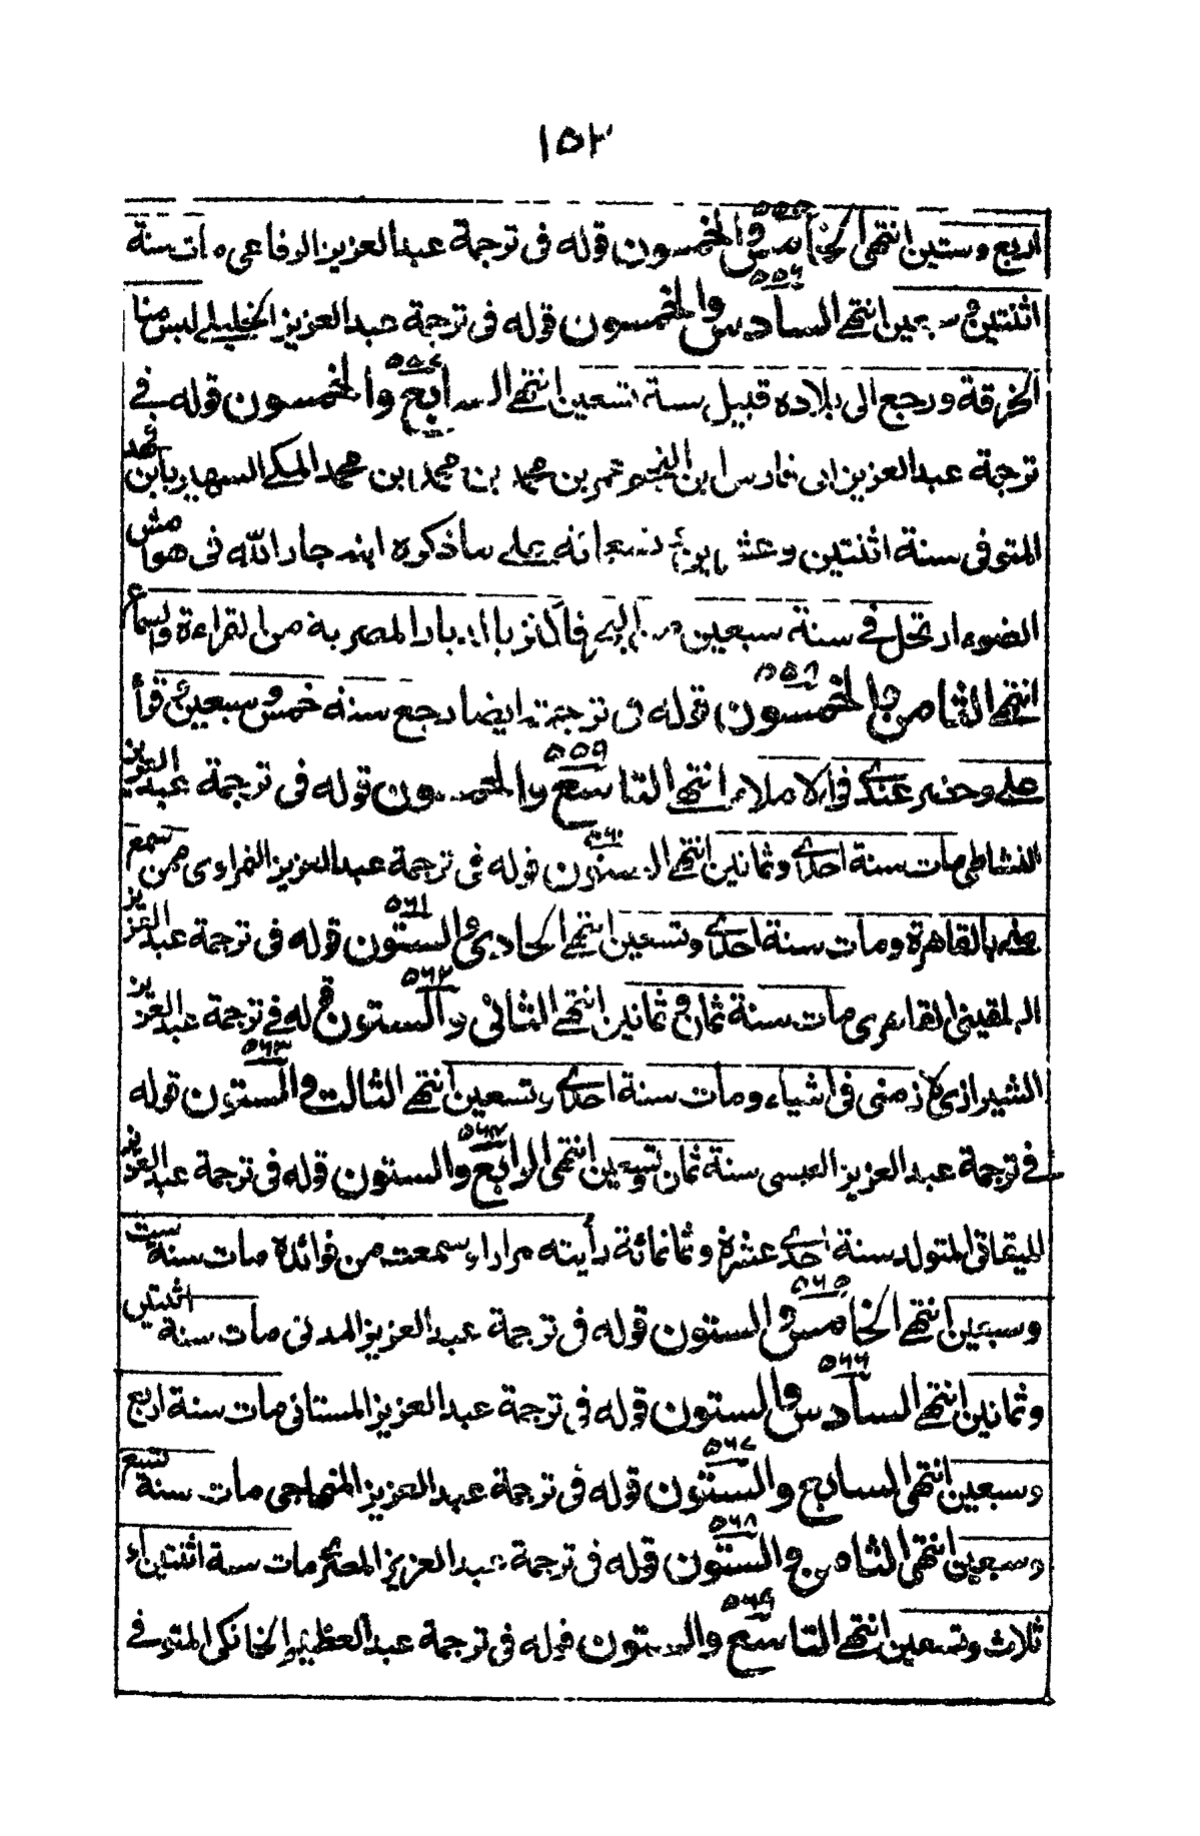 ١٥٢
اربع وستين انتهى الخامس والخمسون قوله فى ترجمة عبد العزيز الرفاعى مات سنة
٥٥٦
اثنتين و انتهے السادس والخمسون قوله فى ترجمة عبد العزيز الخليلے لبس منا
٥٥٧
الخرقة ورجع الى بلاده قبيل سنة تسعين انتهے السابع والخمسون قوله فے
ترجمة عبد العزيز ابن عمر بن محمد بن محمد ابن محمد المكے الشهير بابن فهد
المتوفى سنة اثنتين وعشرين وتسعمائة علے ماذكره ابنه جار الله فى هوامش
الضوء ارتحل فے سنة سبعين فاكثر بالديار المصرية من القراءة والسماع
٥٥٨
انتهے الثامن والخمسون قوله فى ترجمته ايضا رجع سنة خمس وسبعين وقرأ
٥٥٩
علے وحضر عندے فى الاملاء انتهے التاسع والخمسون قوله فى ترجمة عبد العزيز
٥٦٠
النشاطى مات سنة احدے وثمانين انتهے الستون قوله فى ترجمة عبد العزيز ممن سمع
٥٦١
علے بالقاهرة ومات سنة احدے وتسعين انتهے الحادى والستون قوله فى ترجمة عبد العزيز
٥٦٢
البلقينى القاهرى مات سنة ثمان وثمانين انتهے الثانى والستون قوله فے ترجمة عبد العزيز
٥٦٣
الشيرازى لازمنى فى اشياء ومات سنة احدے وتسعين انتهے الثالث والستون قوله
٥٦٤
فے ترجمة عبد العزيز العبسى سنة ثمان وتسعين انتهى الرابع والستون قوله فى ترجمة عبد العزيز
المتولد سنة احدے عشرة وثمانمائة رأيته مرارا وسمعت من فوائده مات سنة ست
٥٦٥
وسبعين انتهے الخامس والستون قوله فى ترجمة عبد العزيز المدنى مات سنة اثنتين
٥٦٦
وثمانين انتهے السادس والستون قوله فى ترجمة عبد العزيز مات سنة اربع
٥٦٧
وسبعين انتهى السابع والستون قوله فى ترجمة عبد العزيز المنهاجى مات سنة تسع
٥٦٨
وسبعين انتهى الثامن والستون قوله فى ترجمة عبد العزيز مات سنة اثنتين او
٥٦٩
ثلاث وتسعين انتهے التاسع والستون قوله فى ترجمة عبد العظيم الخانكى المتوفے